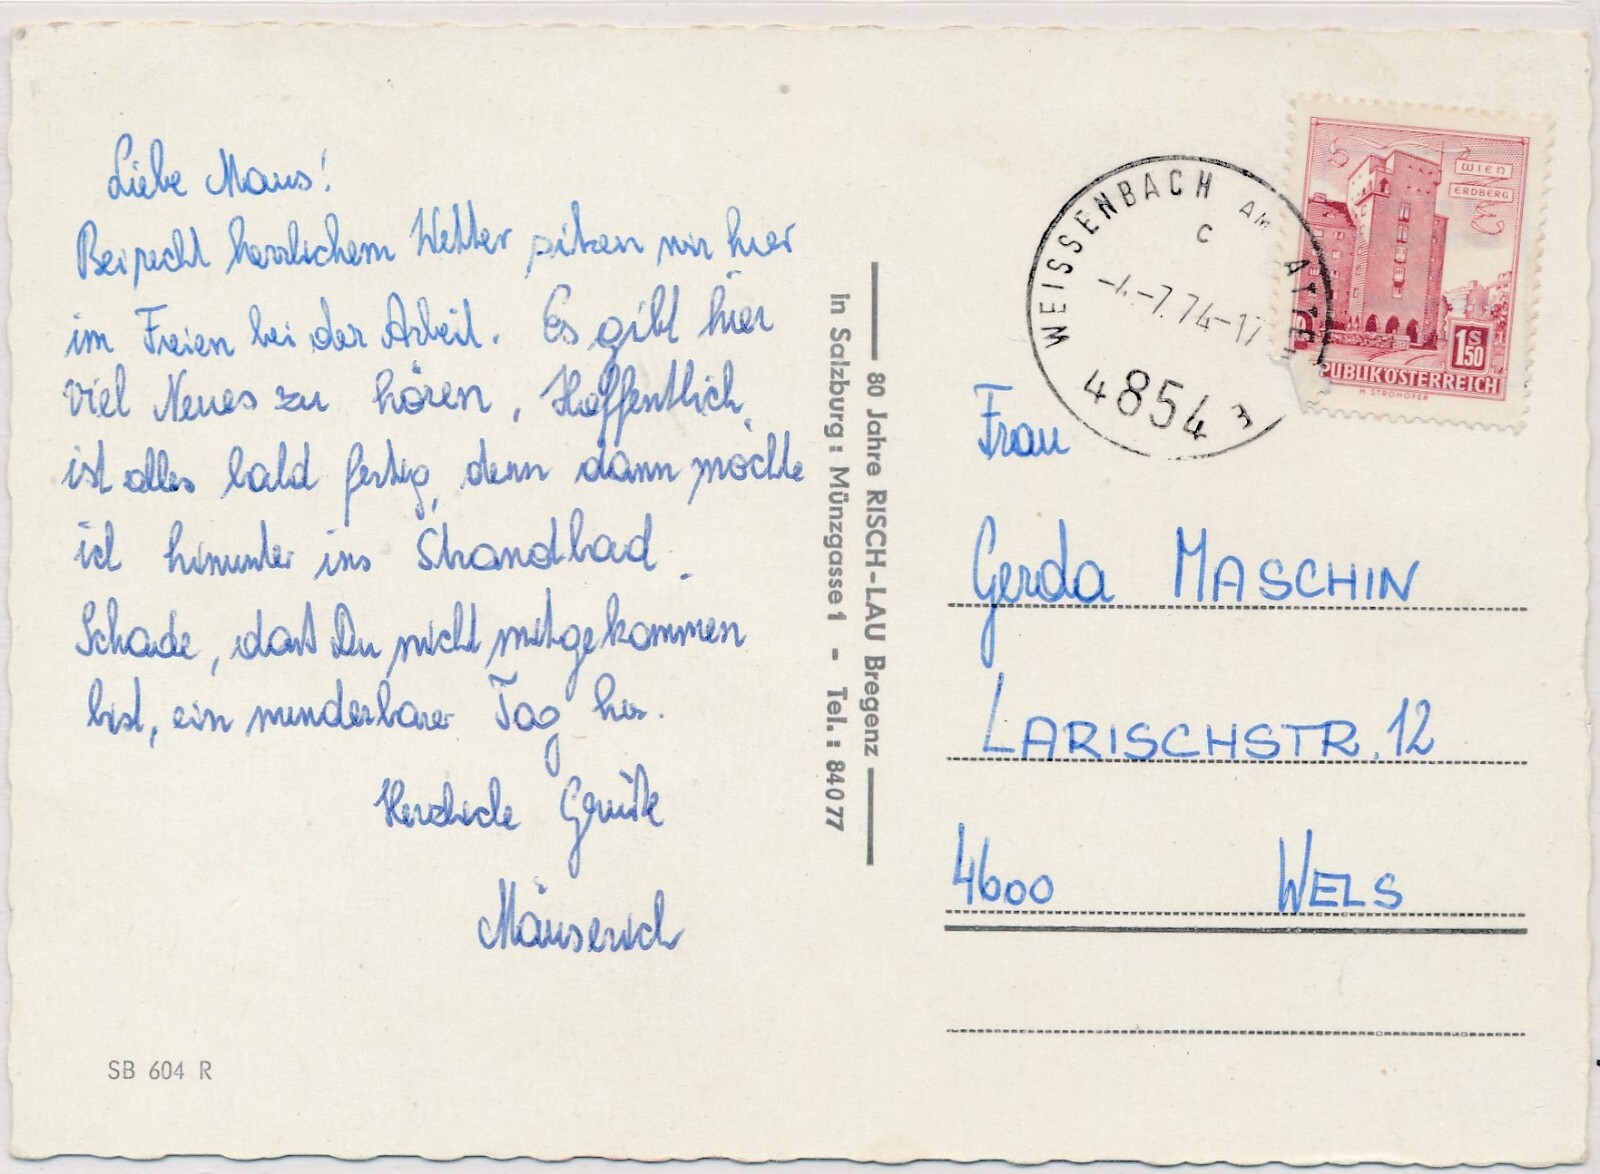 Liebe Maus!
Bei recht herrlichem Wetter sitzen wir hier
im Freien bei der Arbeit. Es gibt hier
viel Neues zu hören. Hoffentlich
ist alles bald fertig, denn dann möchte
ich hinunter ins Strandbad.
Schade, daß Du nicht mitgekommen
bist, ein wunderbarer Tag hier.
Herzliche Grüße
Mäuserich
SB 604 R
80 Jahre RISCH-LAU Bregenz
in Salzburg: Münzgasse 1 - Tel.: 84077
WEISSENBACH AM ATTE
c
-4.-7.74-17
4854
3
WIEN
ERDBERG
1S
50
PUBLIK ÖSTERREICH
H. STROHOFER
Frau
Gerda MASCHIN
LARISCHSTR. 12
4600 WELS